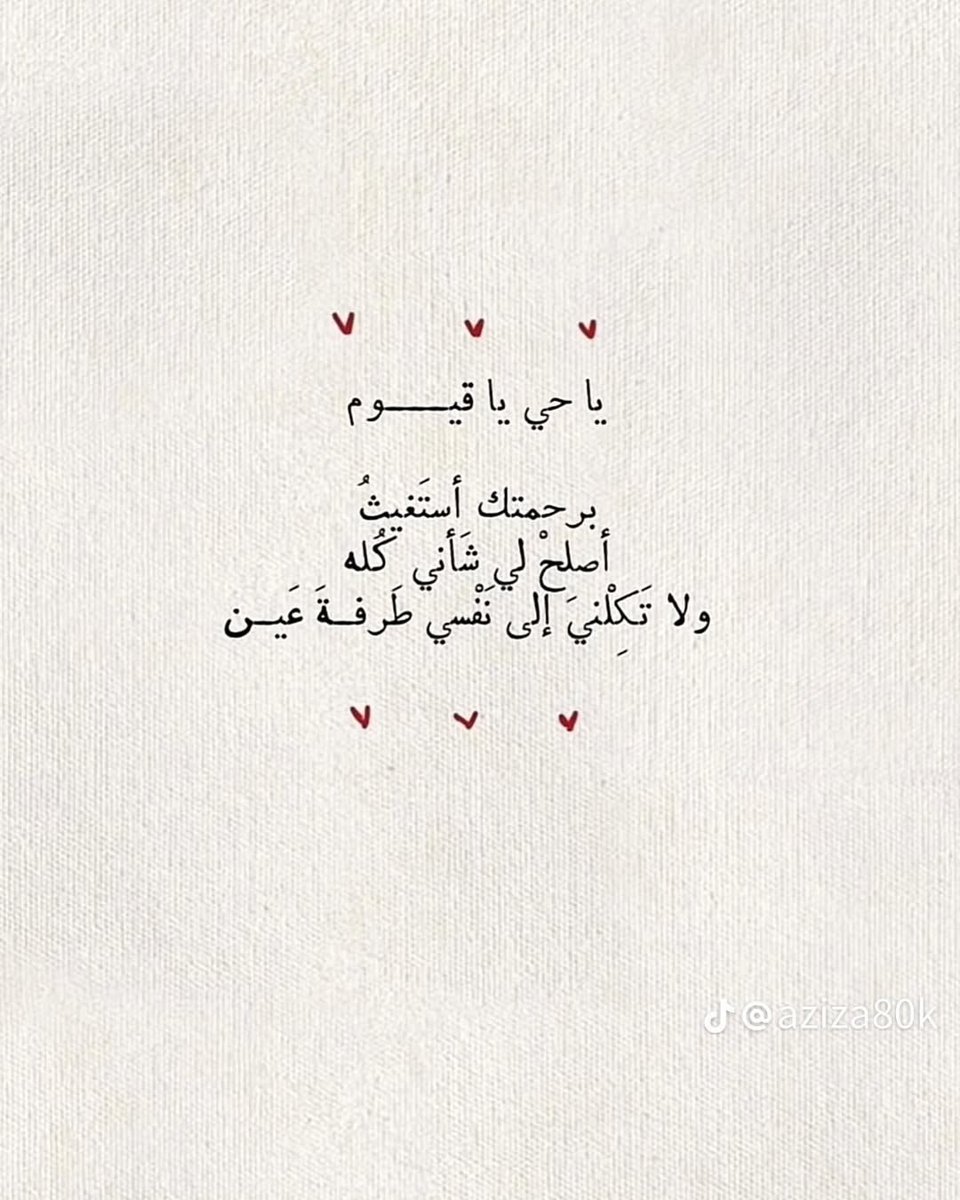 يا حي يا قيـــــوم
برحمتك أستَغيثُ
أصلحْ لي شَأني كُله
ولا تَكِلْنيَ إلى نَفْسي طَرفــةَ عَيــن
@aziza80k